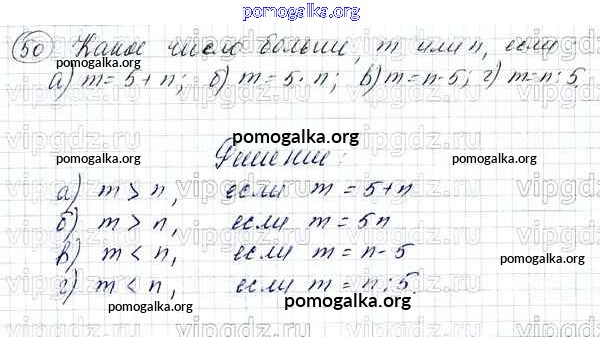 pomogalka.org
50 Какое число больше, m или n, если
а) m = 5 + n; б) m = 5 · n; в) m = n - 5; г) m = n : 5.
pomogalka.org
Решение:
pomogalka.org pomogalka.org
а) m > n, если m = 5 + n
б) m > n, если m = 5n
в) m < n, если m = n - 5
г) m < n, если m = n : 5.
pomogalka.org pomogalka.org